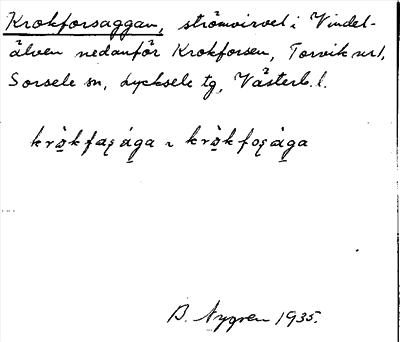 Krokforsaggan, strömvirvel i Vindel-
älven nedanför Krokforsen, Torvik nr 1,
Sorsele sn, Lycksele tg, Västerb. l.
B. Nygren 1935.